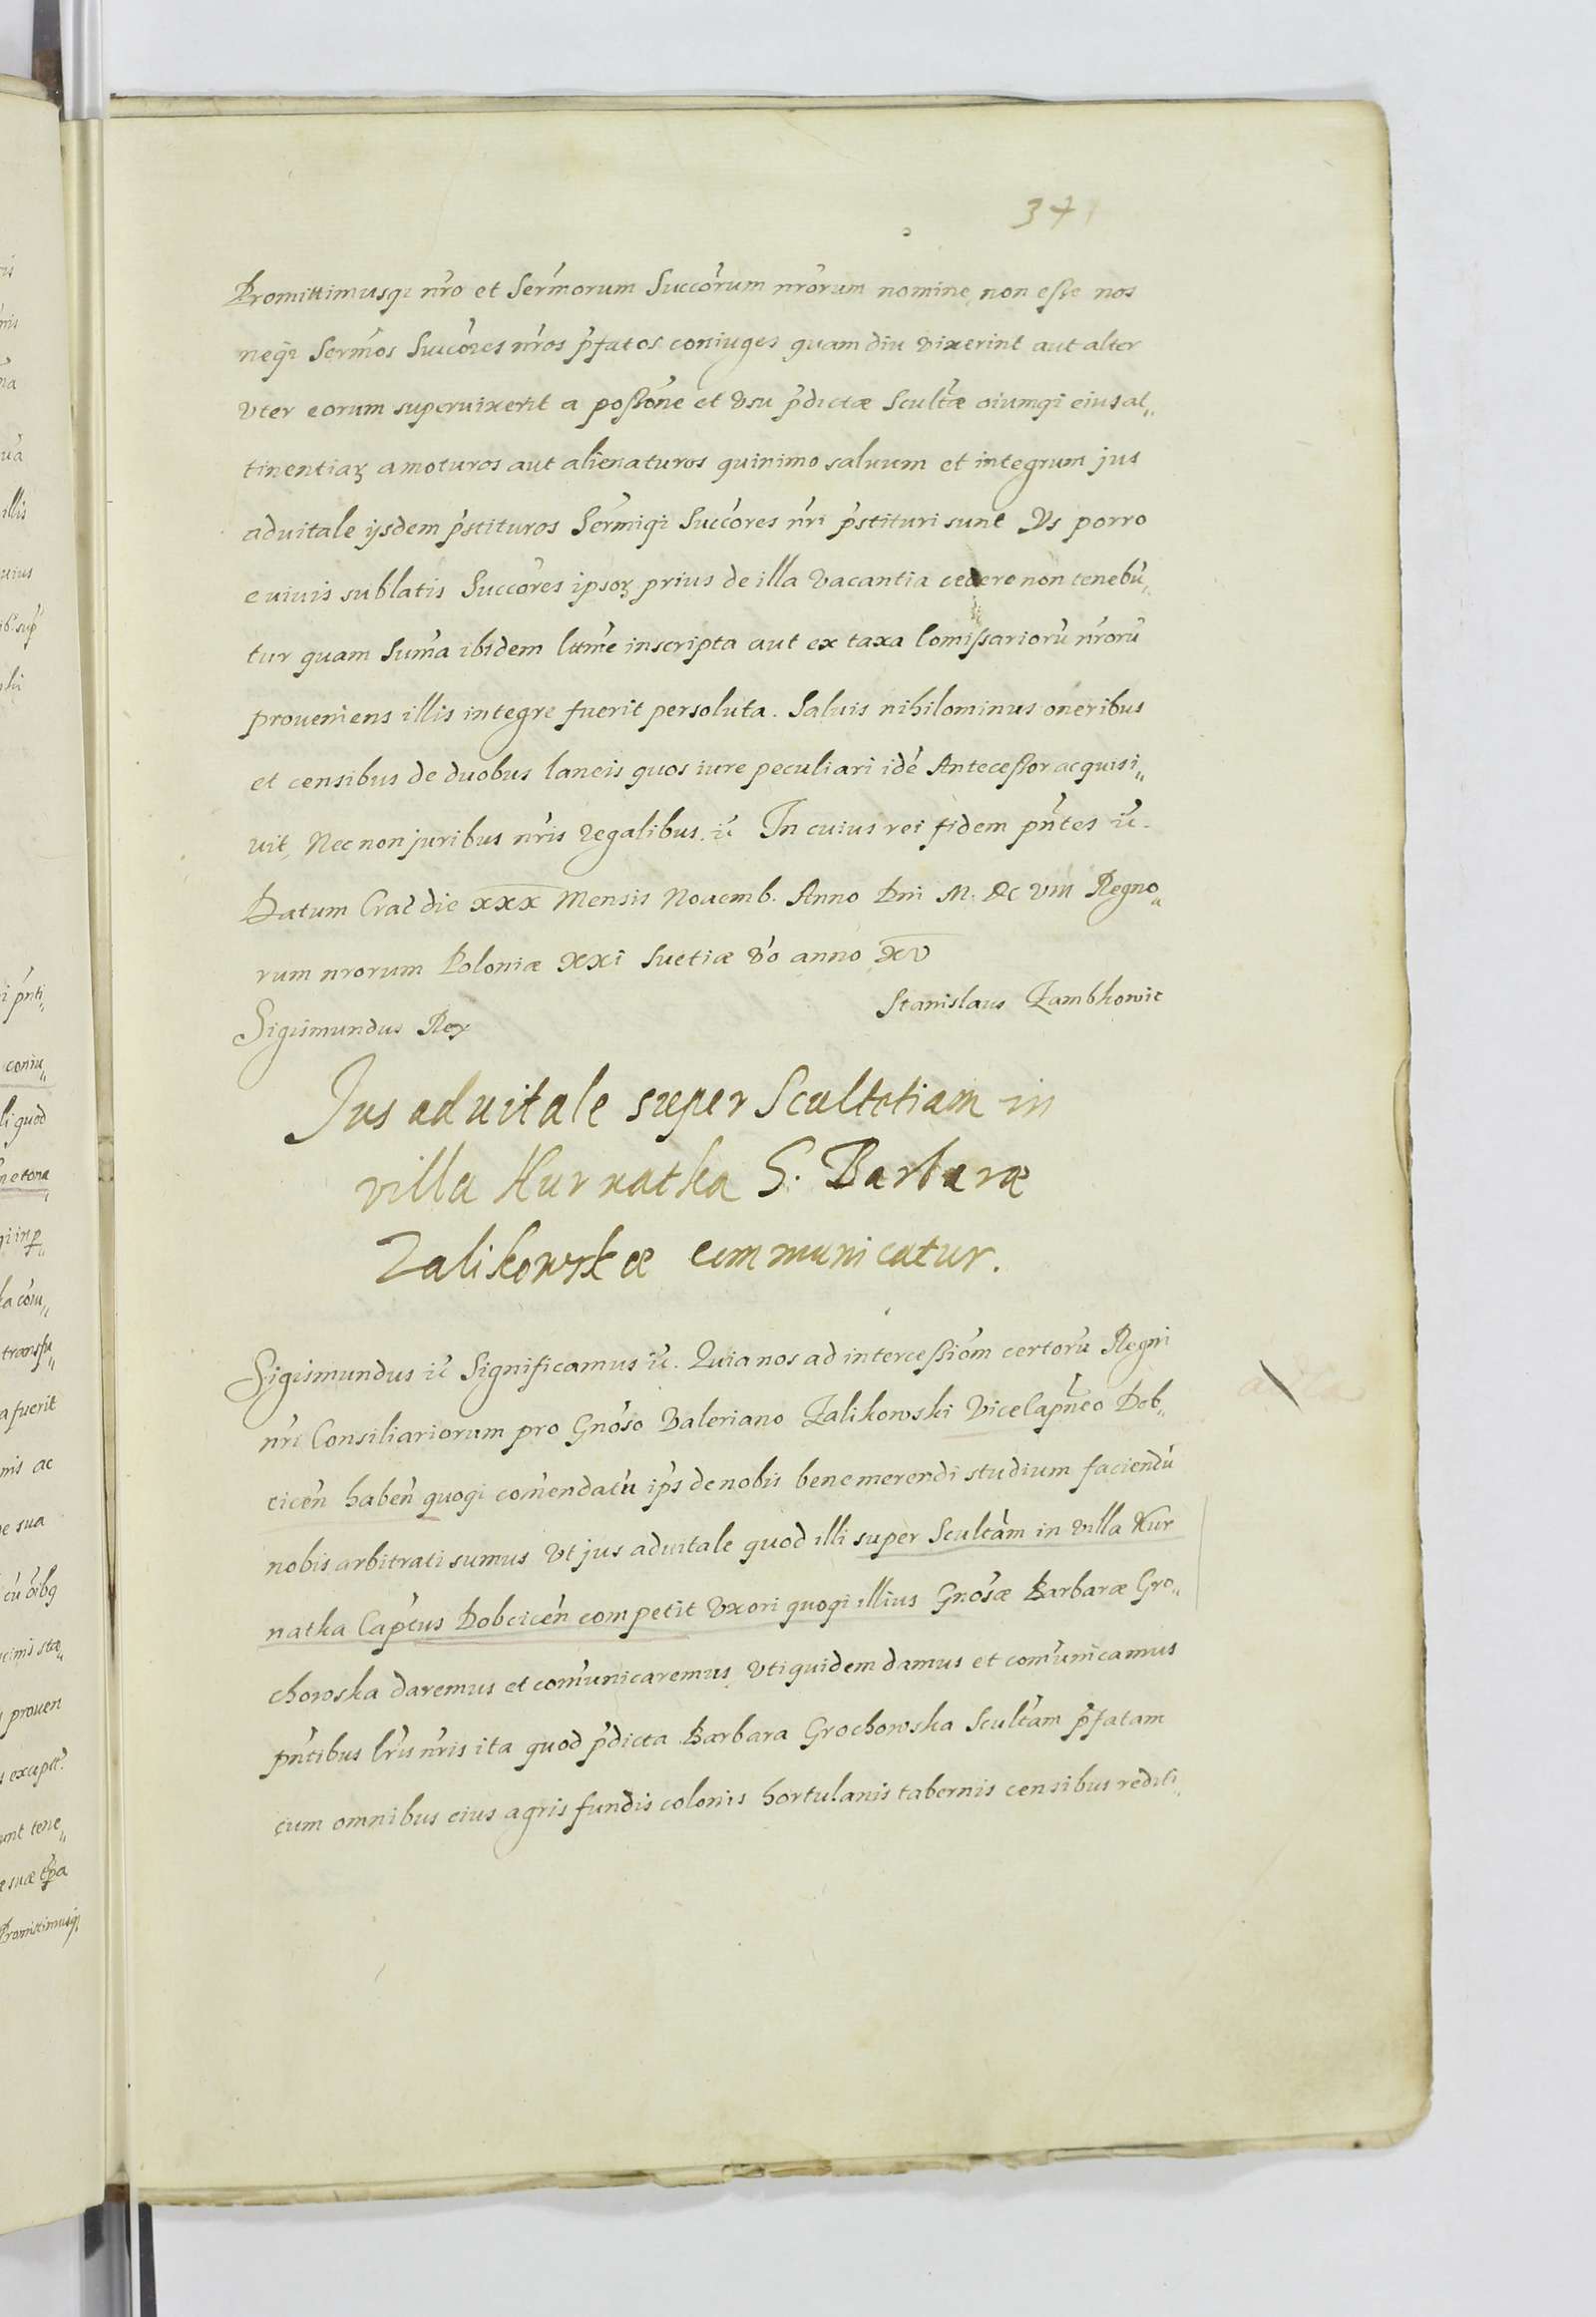 371
Promittimusqz nr̃o et Serm̃orum Succõrum nrõrum nomine, non eſſe nos
neqz Serm̃os Succõres nr̃os p̃fatos coniuges quam diu vixerint aut alter
vter eorum superuixerit a poſſõne et Vsu p̃dictæ Scult̃æ oiumqz eius at„
tinentiaꝝ amoturos aut alienaturos quinimo saluum et integrum jus
aduitale ijsdem p̃stituros Serm̃iqz Succõres nr̃i p̃stituri sunt Ys porro
e viuis sublatis Succõres ipsoꝝ prius de illa Vacantia cedere non tenebũ„
tur quam Sum̃a ibidem ltm̃e inscripta aut ex taxa Comiſsariorũ nr̃orũ
proueniens illis integre fuerit persoluta. Saluis nihilominus oneribus
et censibus de duobus laneis quos iure peculiari idẽ Anteceſſor acquisi„
uit, Nec non juribus nr̃is regalibus. ic̃ In cuius rei fidem pñtes ic̃.
Datum Crac̃ die xxx Mensis Nouemb. Anno Dni M. DC VIII Regno„
rum nrorum Poloniæ XXI Suetiæ ṽo anno XV
Stanislaus Zambkowic
Sigismundus Rex
Jus aduitale super Scultetiam in
villa Kurnatka G. Barbaræ
Zalikowskæ communicatur.
Sigismundus ic̃ Significamus ic̃. Quia nos ad interceſſiõm certorũ Regni
nr̃i Consiliariorum pro Gnõso Valeriano Zalikowski ViceCapñeo Dob„
cicẽn habẽn quoqz com̃endatũ ip̃s de nobis bene merendi studium faciendũ
nobis arbitrati sumus Vt jus aduitale quod illi super Scultãm in Villa Kur
natka Cap̃tus Dobcicẽn competit Vxori quoqz illius Gnõsæ Barbaræ Gro„
chowska daremus et com̃unicaremus, Vti quidem damus et com̃unicamus
pñtibus lr̃is nr̃is ita quod p̃dicta Barbara Grochowska Scult̃am p̃fatam
cum omnibus eius agris fundis colonis hortulanis tabernis censibus rediti„